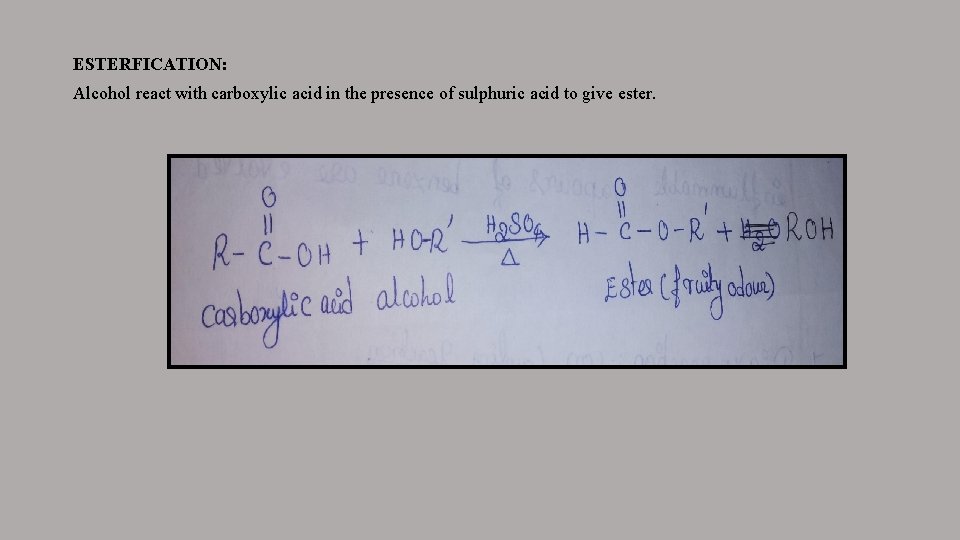 ESTERFICATION:
Alcohol react with carboxylic acid in the presence of sulphuric acid to give ester.
O O
|| ||
R-C-OH + HO-R' H2SO4 → H-C-O-R' + H2O ROH
Δ
carboxylic acid alcohol Ester (fruity odour)